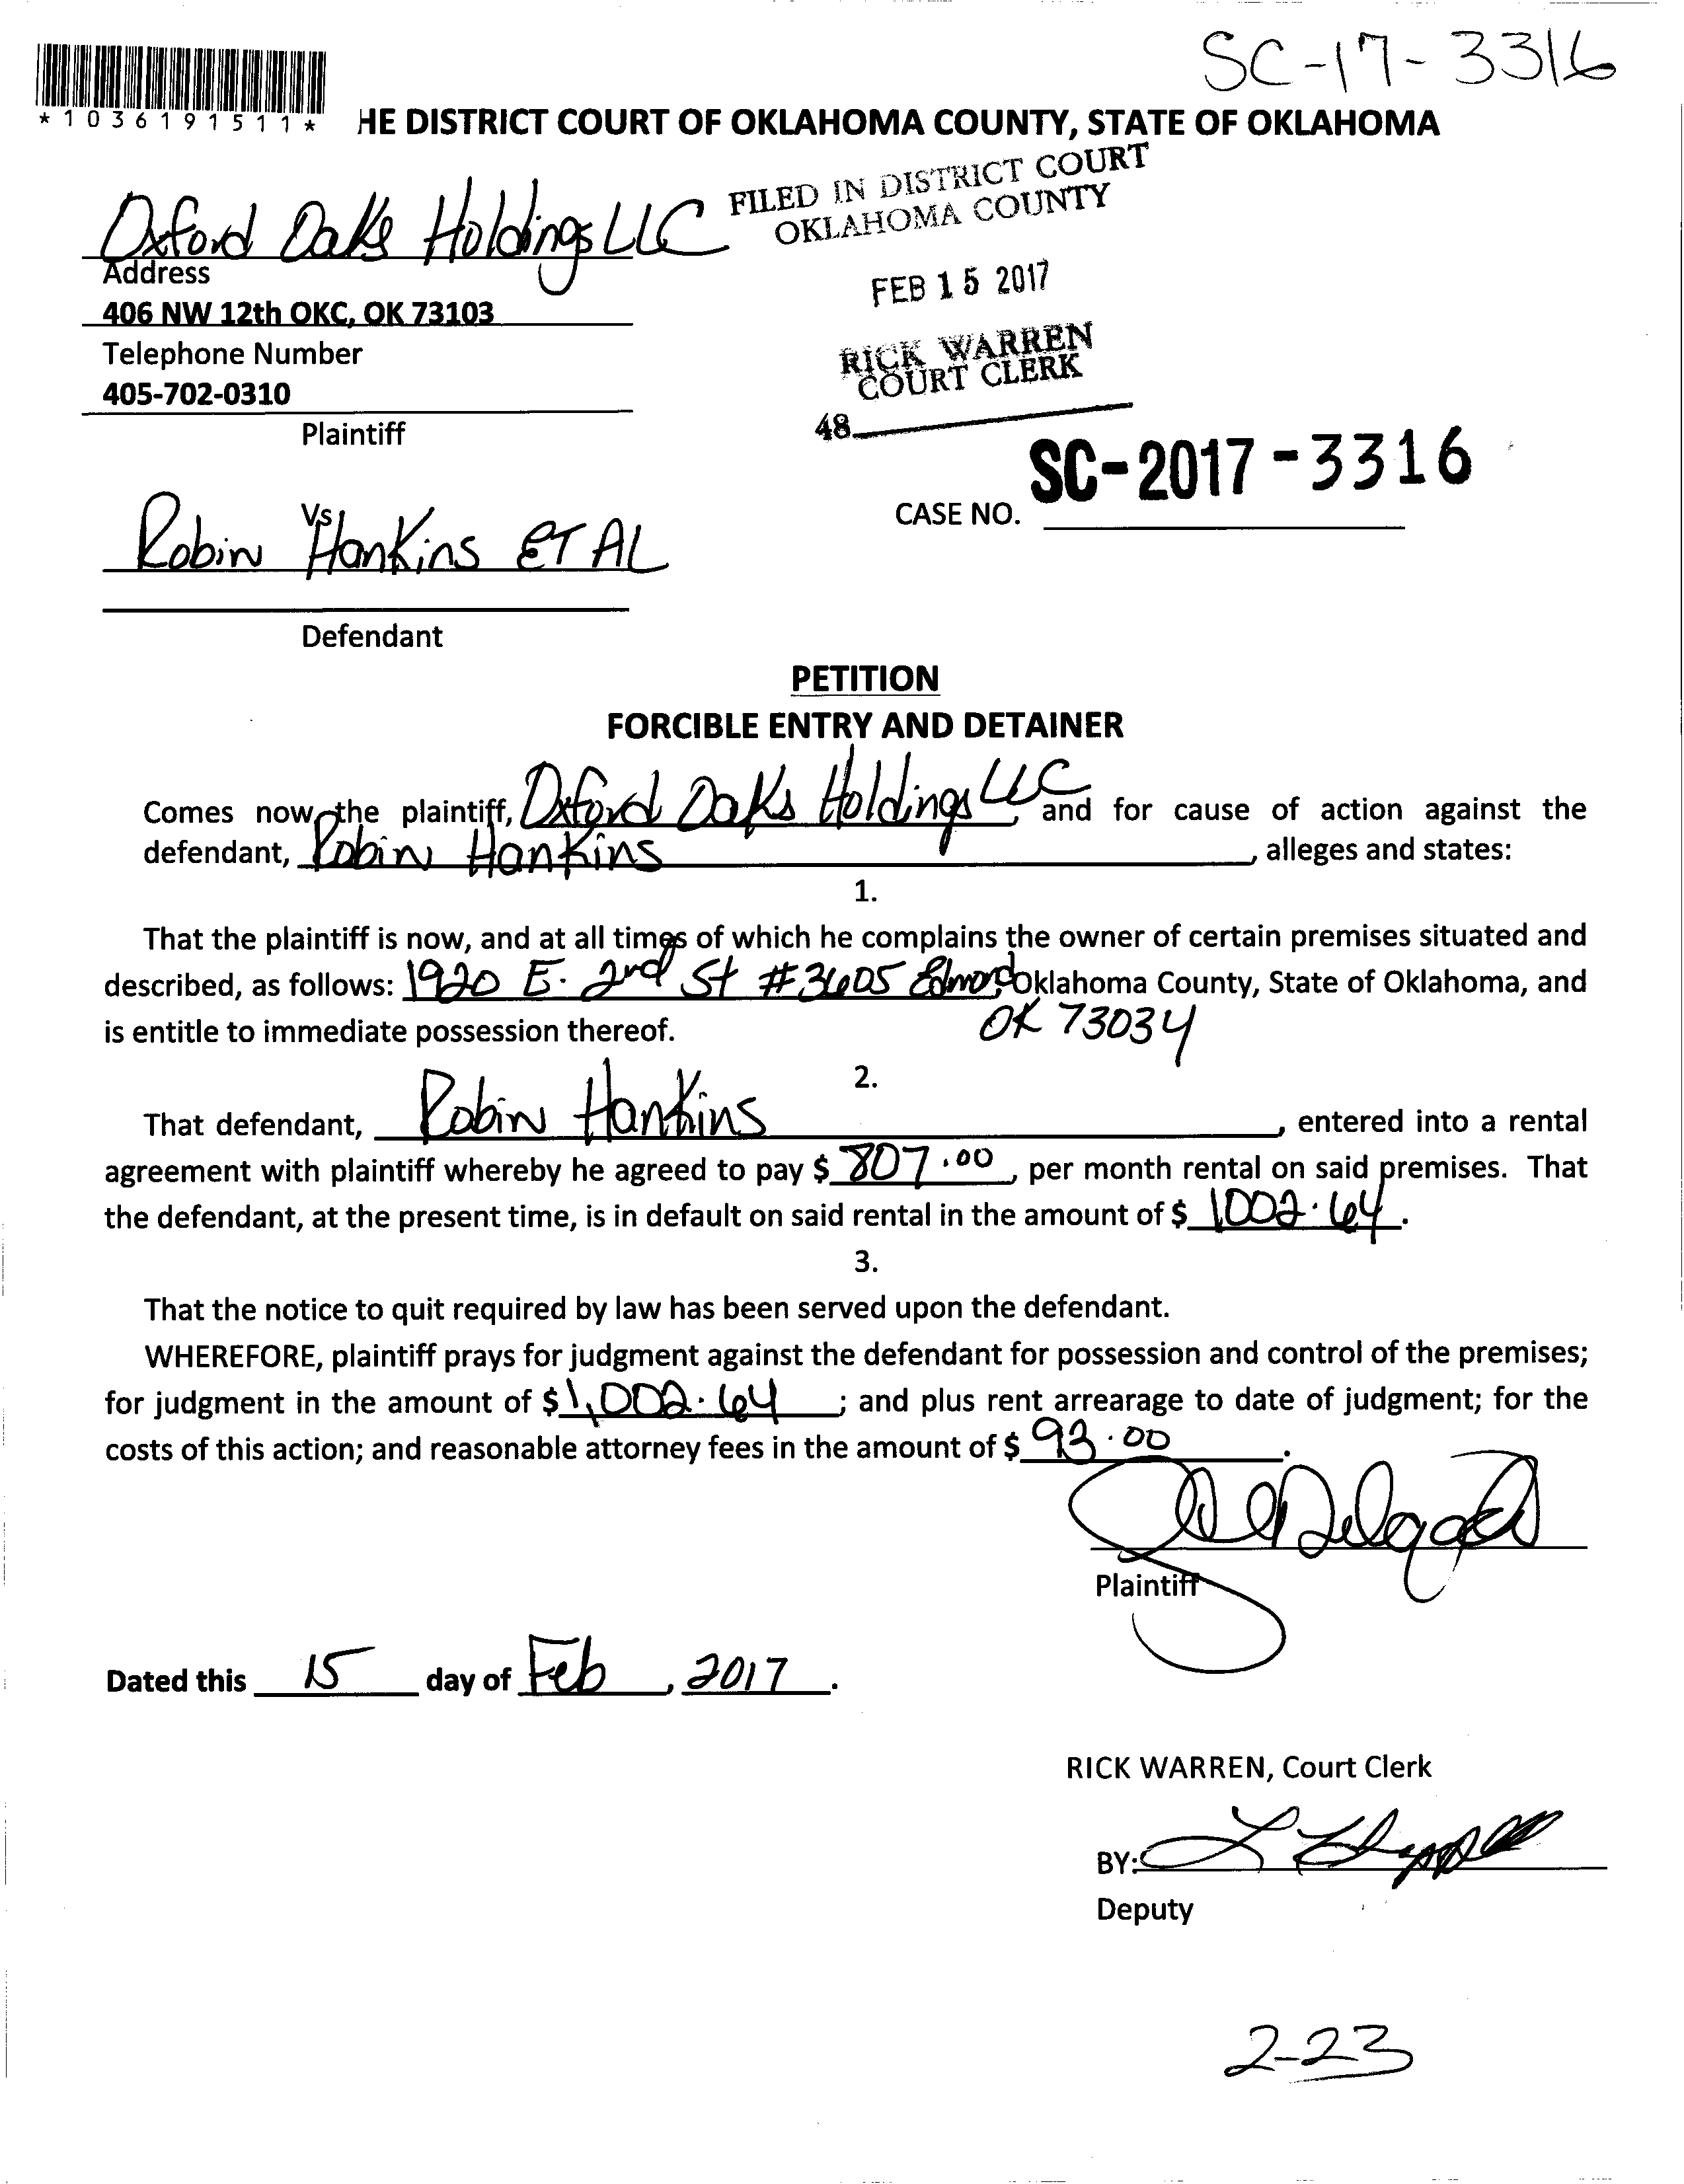 SC-17-3316
*1036191511*
HE DISTRICT COURT OF OKLAHOMA COUNTY, STATE OF OKLAHOMA
Oxford Oaks Holdings LLC
FILED IN DISTRICT COURT
OKLAHOMA COUNTY
Address
406 NW 12th OKC, OK 73103
FEB 15 2017
Telephone Number
RICK WARREN
COURT CLERK
405-702-0310
48
Plaintiff
SC-2017-3316
CASE NO.
Vs
Robin Hankins ET AL
Defendant
PETITION
FORCIBLE ENTRY AND DETAINER
Comes now the plaintiff, Oxford Oaks Holdings LLC, and for cause of action against the
defendant, Robin Hankins, alleges and states:
1.
That the plaintiff is now, and at all times of which he complains the owner of certain premises situated and
described, as follows: 1920 E. 2nd St #3605 Edmond, Oklahoma County, State of Oklahoma, and
OK 73034
is entitle to immediate possession thereof.
2.
That defendant, Robin Hankins, entered into a rental
agreement with plaintiff whereby he agreed to pay $ 807.00, per month rental on said premises. That
the defendant, at the present time, is in default on said rental in the amount of $ 1002.64.
3.
That the notice to quit required by law has been served upon the defendant.
WHEREFORE, plaintiff prays for judgment against the defendant for possession and control of the premises;
for judgment in the amount of $ 1,002.64; and plus rent arrearage to date of judgment; for the
costs of this action; and reasonable attorney fees in the amount of $ 93.00.
Plaintiff
Dated this 15 day of Feb, 2017.
RICK WARREN, Court Clerk
BY:
Deputy
2-23